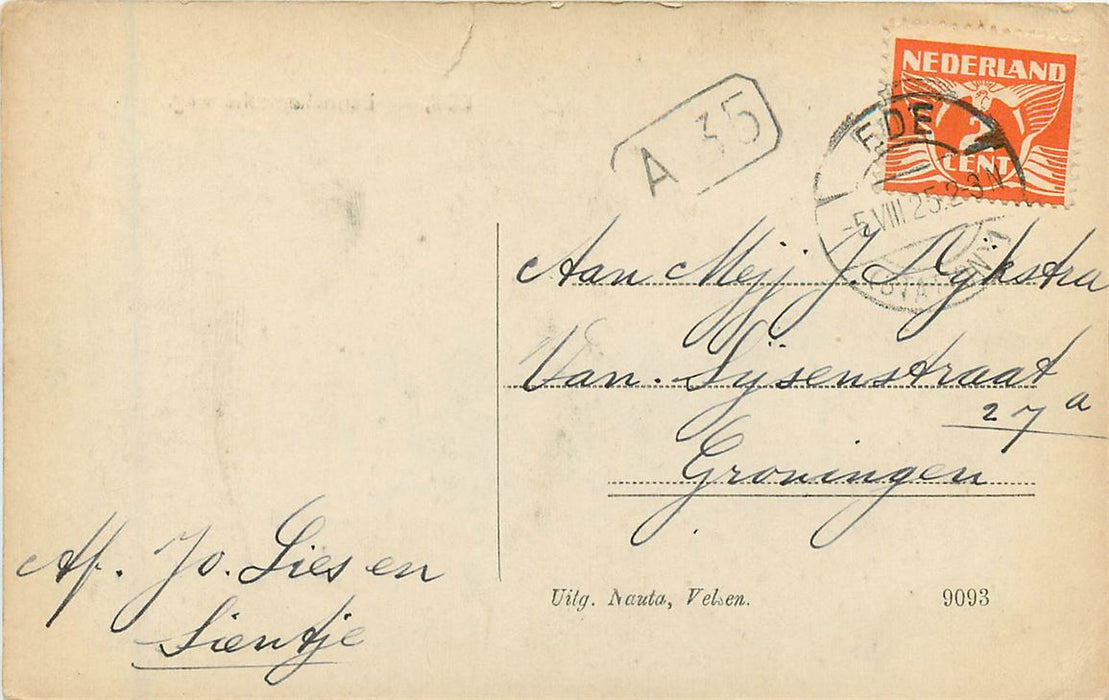 NEDERLAND
2
CENT
A 35
EDE
-5.VIII.25.2-3N
(STATION)
Aan Mejj J. Dijkstra
Van. Sijsenstraat
27 a
Groningen
Af. Jo. Lies en
Sientje
Uitg. Nauta, Velsen. 9093